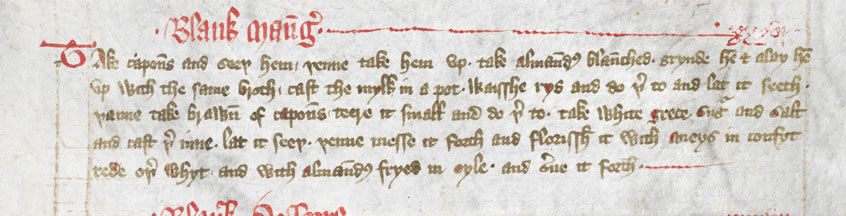 Blank Maūg͛
Take capouns and seeþ hem, þenne take hem up. take almandꝯ blaunched. grynde hē ⁊ alay hē
up with the same broth, cast the mylk in a pot. waisshe rys and do þ͛ to and lat it seeth.
þanne take brawn of capouns teere it small and do þ͛ to. take white grece sug͛ and salt
and cast þ͛ inne. lat it seeþ. þenne messe it forth and florissh it with aneys in confyt
rede oþ͛ whyt. and with almandꝯ fryed in oyle. and s͛ue it forth.
Blank